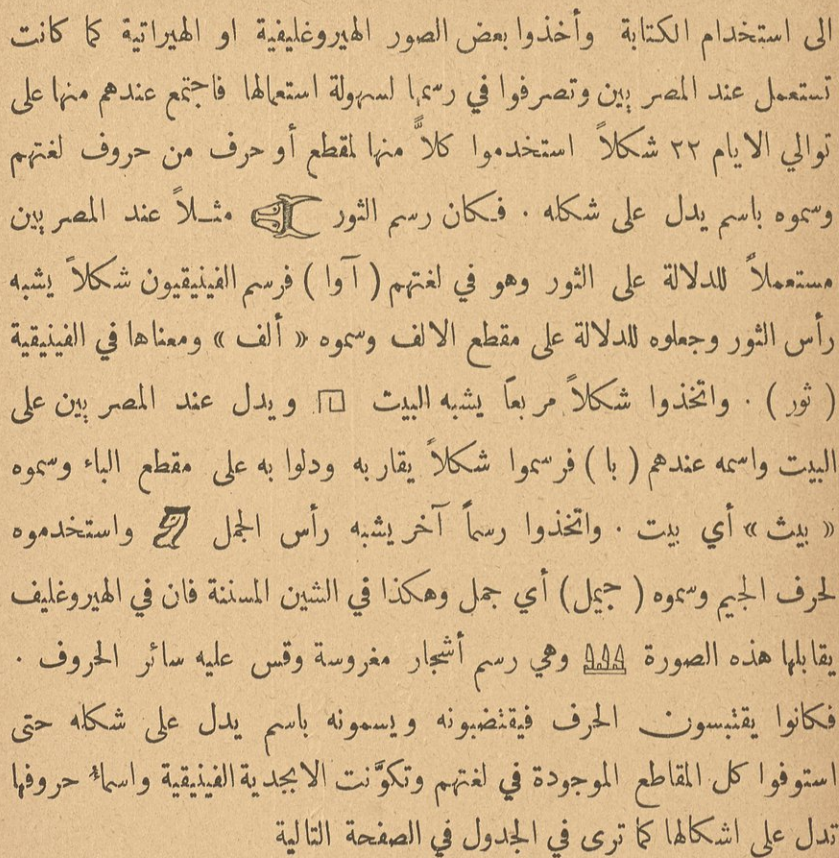 الى استخدام الكتابة وأخذوا بعض الصور الهيروغليفية او الهيراتية كما كانت
تستعمل عند المصريين وتصرفوا في رسمها لسهولة استعمالها فاجتمع عندهم منها على
توالي الايام ٢٢ شكلاً استخدموا كلاًّ منها لمقطع أو حرف من حروف لغتهم
وسموه باسم يدل على شكله . فكان رسم الثور مثلاً عند المصريين
مستعملاً للدلالة على الثور وهو في لغتهم ( آوا ) فرسم الفينيقيون شكلاً يشبه
رأس الثور وجعلوه للدلالة على مقطع الالف وسموه « ألف » ومعناها في الفينيقية
( ثور ) . واتخذوا شكلاً مربعاً يشبه البيت ويدل عند المصريين على
البيت واسمه عندهم ( با ) فرسموا شكلاً يقاربه ودلوا به على مقطع الباء وسموه
« بيث » أي بيت . واتخذوا رسماً آخر يشبه رأس الجمل واستخدموه
لحرف الجيم وسموه ( جيمل ) أي جمل وهكذا في الشين المسننة فان في الهيروغليف
يقابلها هذه الصورة وهي رسم أشجار مغروسة وقس عليه سائر الحروف .
فكانوا يقتبسون الحرف فيقتضبونه ويسمونه باسم يدل على شكله حتى
استوفوا كل المقاطع الموجودة في لغتهم وتكوَّنت الابجدية الفينيقية واسماء حروفها
تدل على اشكالها كما ترى في الجدول في الصفحة التالية